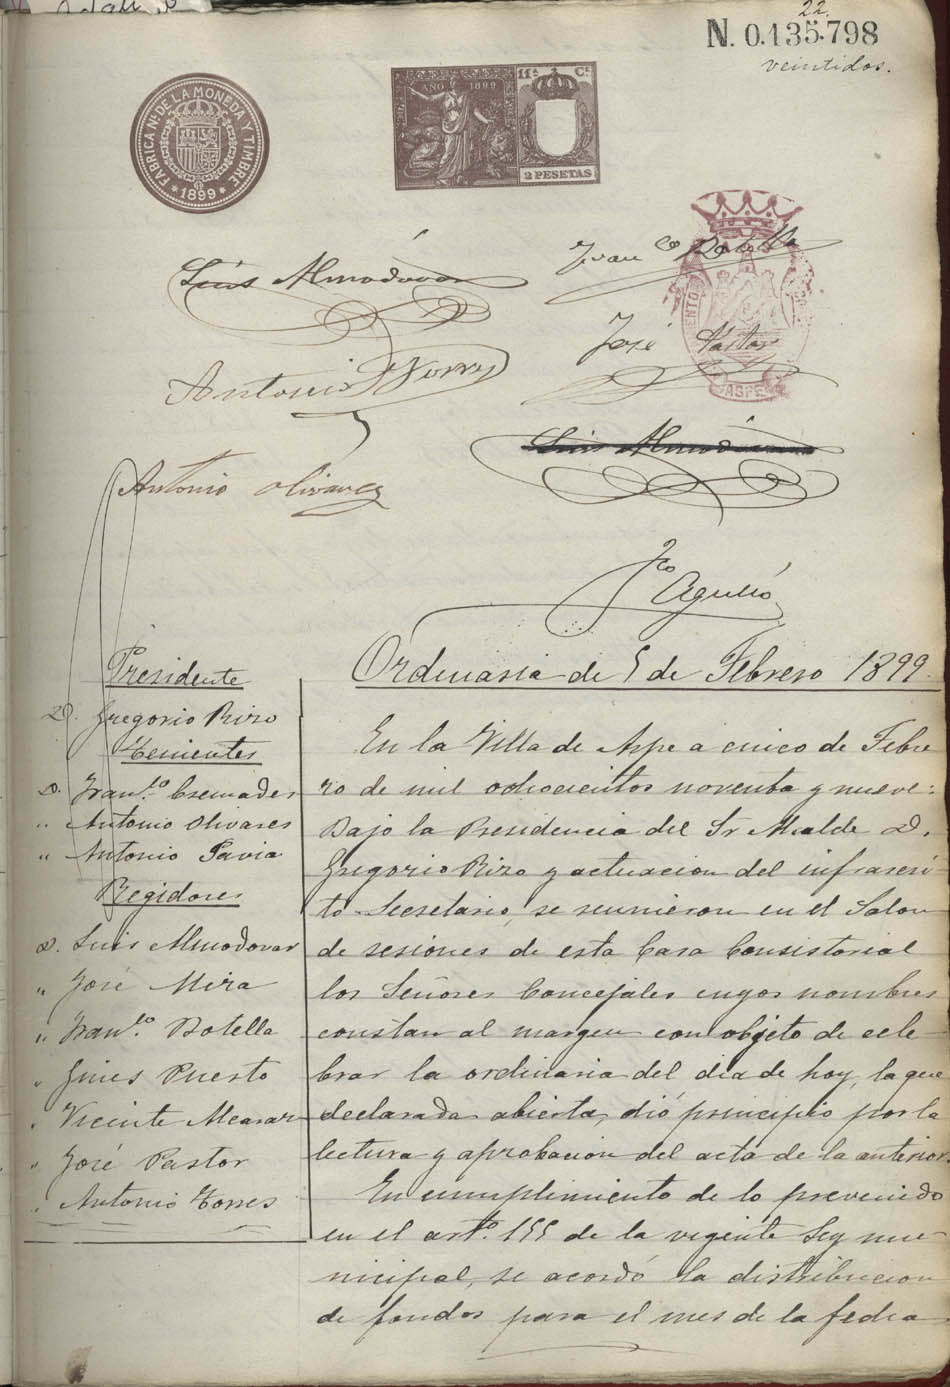 22.
N. 0.135.798
veintidos.
FABRICA N.l DE LA MONEDA Y TIMBRE
* 1899 *
AÑO 1899
11.ª C.ª
2 PESETAS
Luis Almodovar
Fran.co Botella
José Pastor
ASPE
Antonio Torres
Luis Almodovar
Antonio Olivares
Fco Agulló
Ordinaria de 5 de Febrero 1899.
Presidente
D. Gregorio Rizo
Tenientes
D. Fran.co Cremades
" Antonio Olivares
" Antonio Pavia
Regidores
D. Luis Almodovar
" José Mira
" Fran.co Botella
" Gines Puerto
" Vicente Alcaraz
" José Pastor
" Antonio Torres
En la Villa de Aspe a cinco de Febre
ro de mil ochocientos noventa y nueve:
Bajo la Presidencia del Sr Alcalde D.
Gregorio Rizo y actuacion del infrascri
to Secretario, se reunieron en el Salon
de sesiones de esta Casa Consistorial
los Señores Concejales cuyos nombres
constan al margen con objeto de cele
brar la ordinaria del dia de hoy, la que
declarada abierta, dió principio por la
lectura y aprobacion del acta de la anterior.
En cumplimiento de lo prevenido
en el art.o 155 de la vigente Ley mu
nicipal, se acordó la distribucion
de fondos para el mes de la fecha